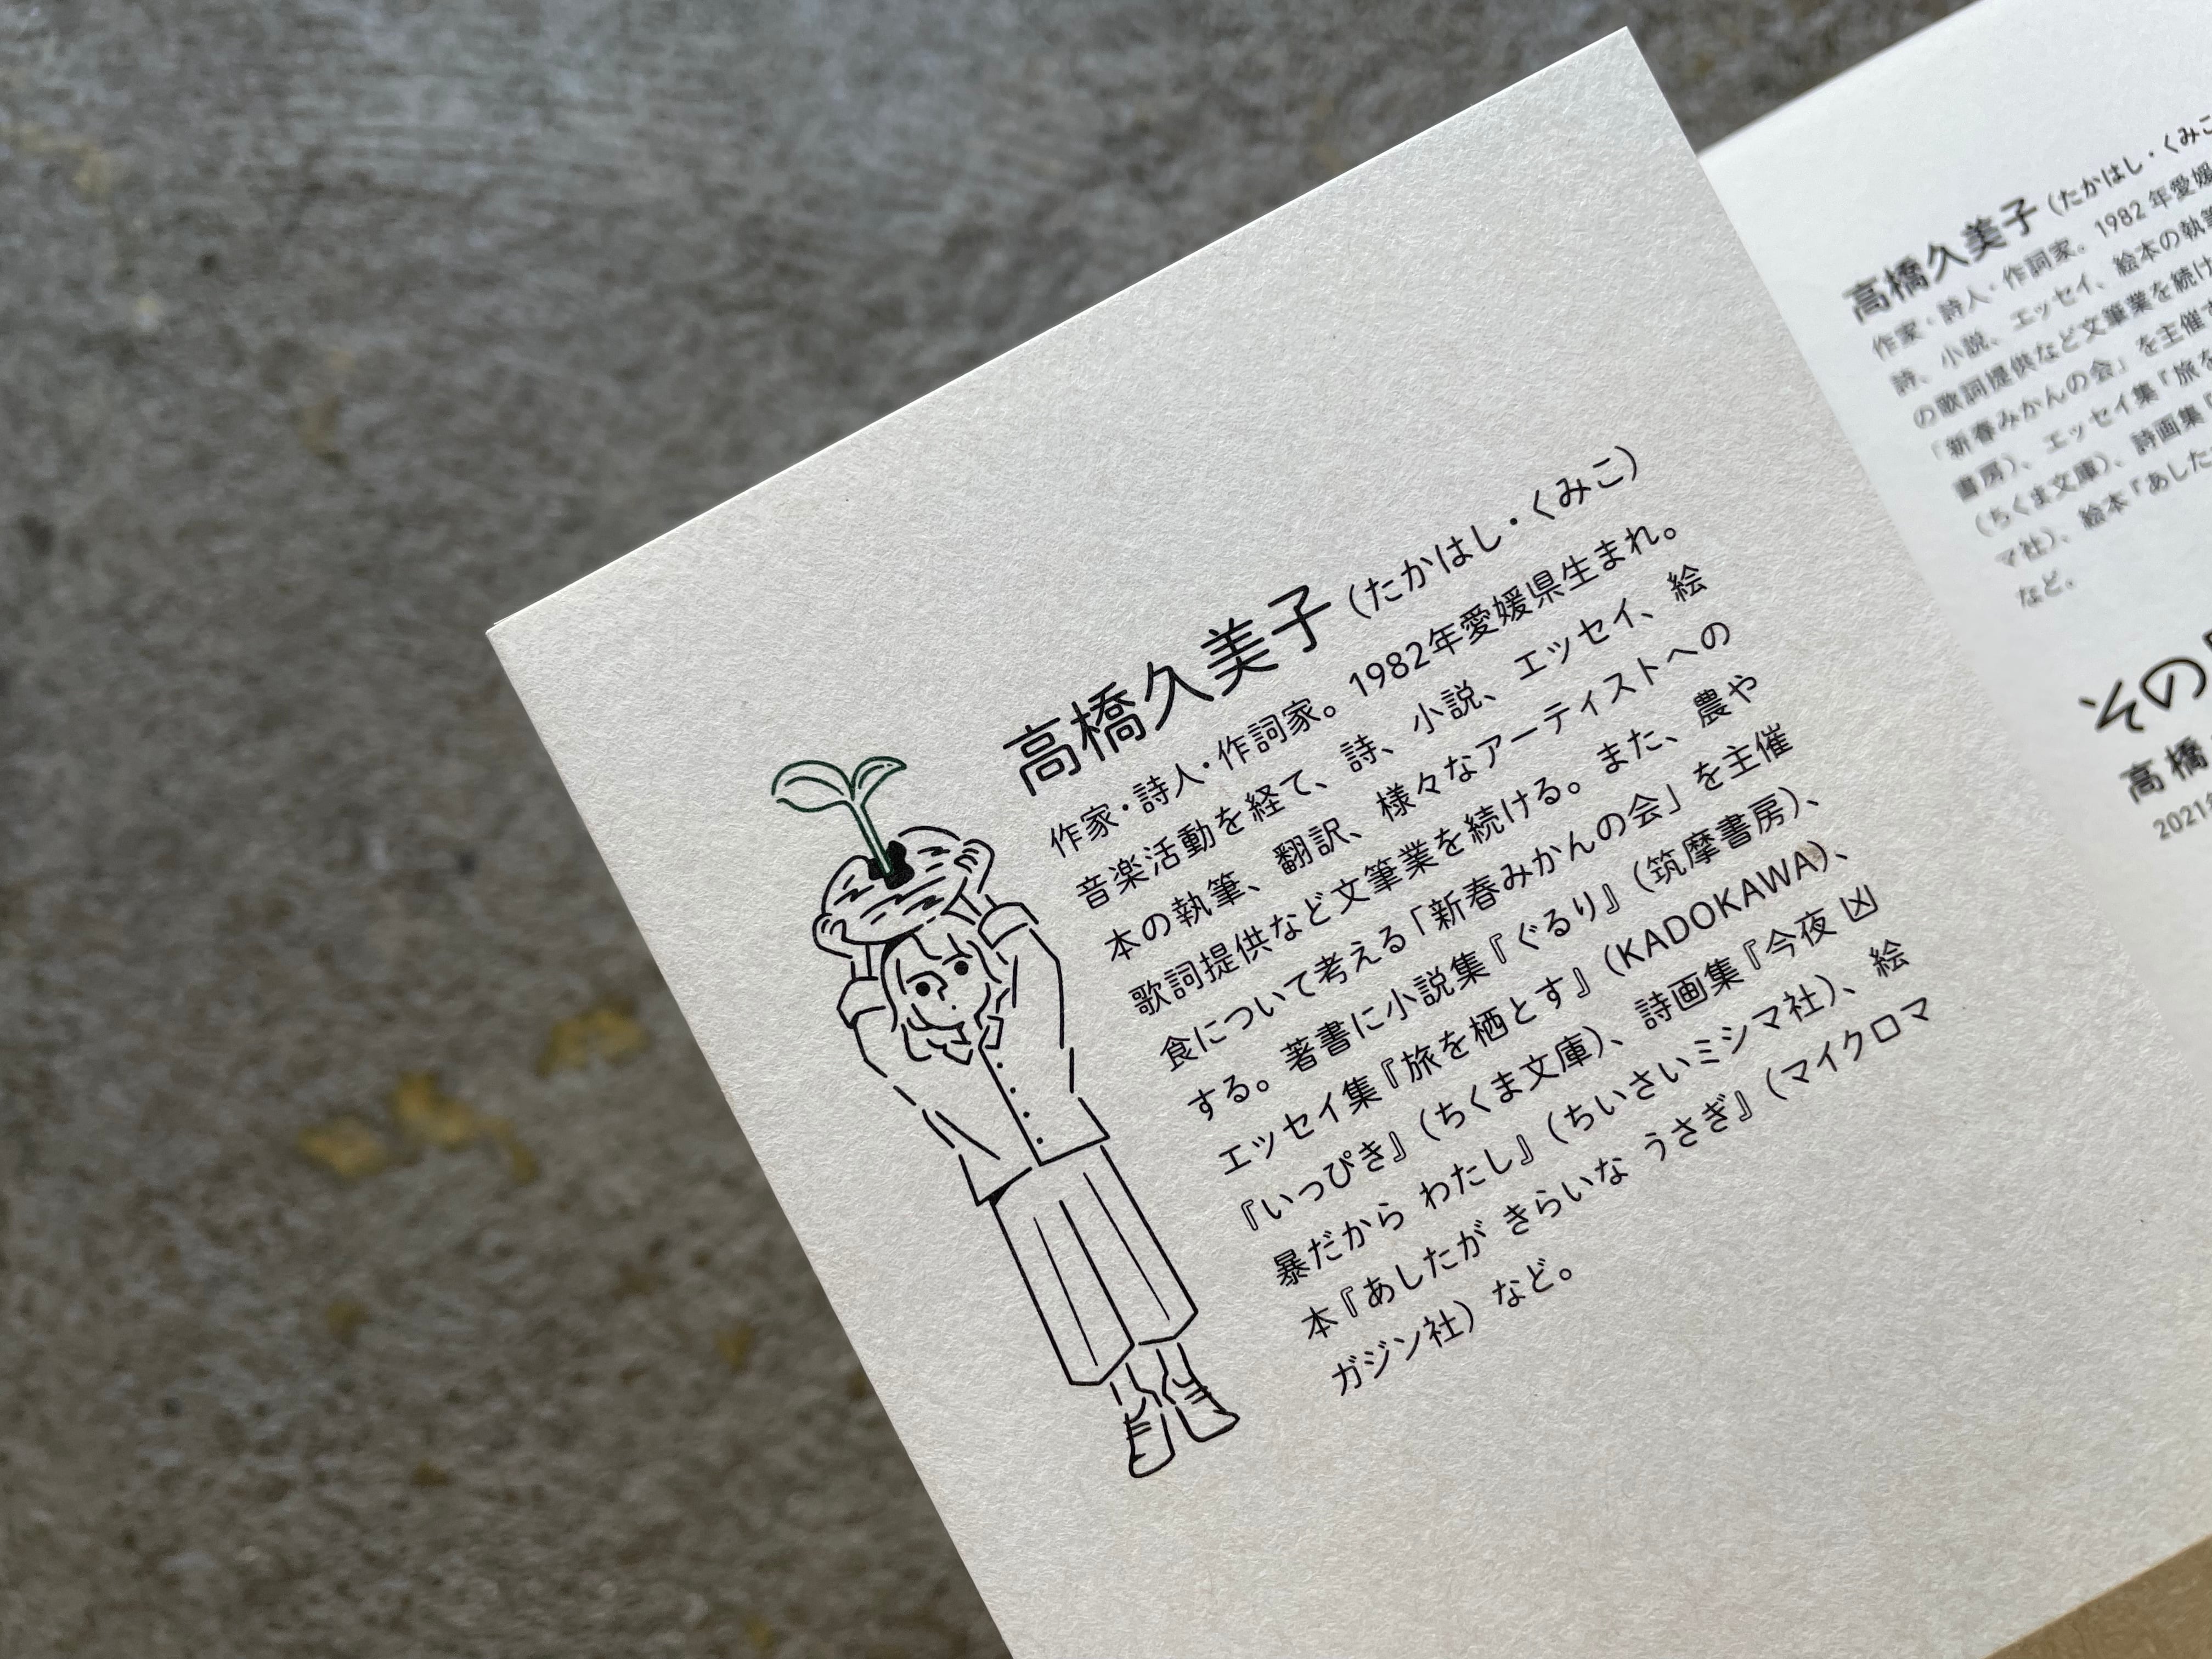 高橋久美子（たかはし・くみこ）
作家・詩人・作詞家。1982年愛媛県生まれ。
音楽活動を経て、詩、小説、エッセイ、絵
本の執筆、翻訳、様々なアーティストへの
歌詞提供など文筆業を続ける。また、農や
食について考える「新春みかんの会」を主催
する。著書に小説集『ぐるり』（筑摩書房）、
エッセイ集『旅を栖とす』（KADOKAWA）、
『いっぴき』（ちくま文庫）、詩画集『今夜 凶
暴だから わたし』（ちいさいミシマ社）、絵
本『あしたが きらいな うさぎ』（マイクロマ
ガジン社）など。
高橋久美子（たかはし・くみこ
作家・詩人・作詞家。1982年愛媛
詩、小説、エッセイ、絵本の執筆
の歌詞提供など文筆業を続け
「新春みかんの会」を主催
書房）、エッセイ集『旅を
（ちくま文庫）、詩画集『
マ社）、絵本『あした
など。
その
高橋
2021